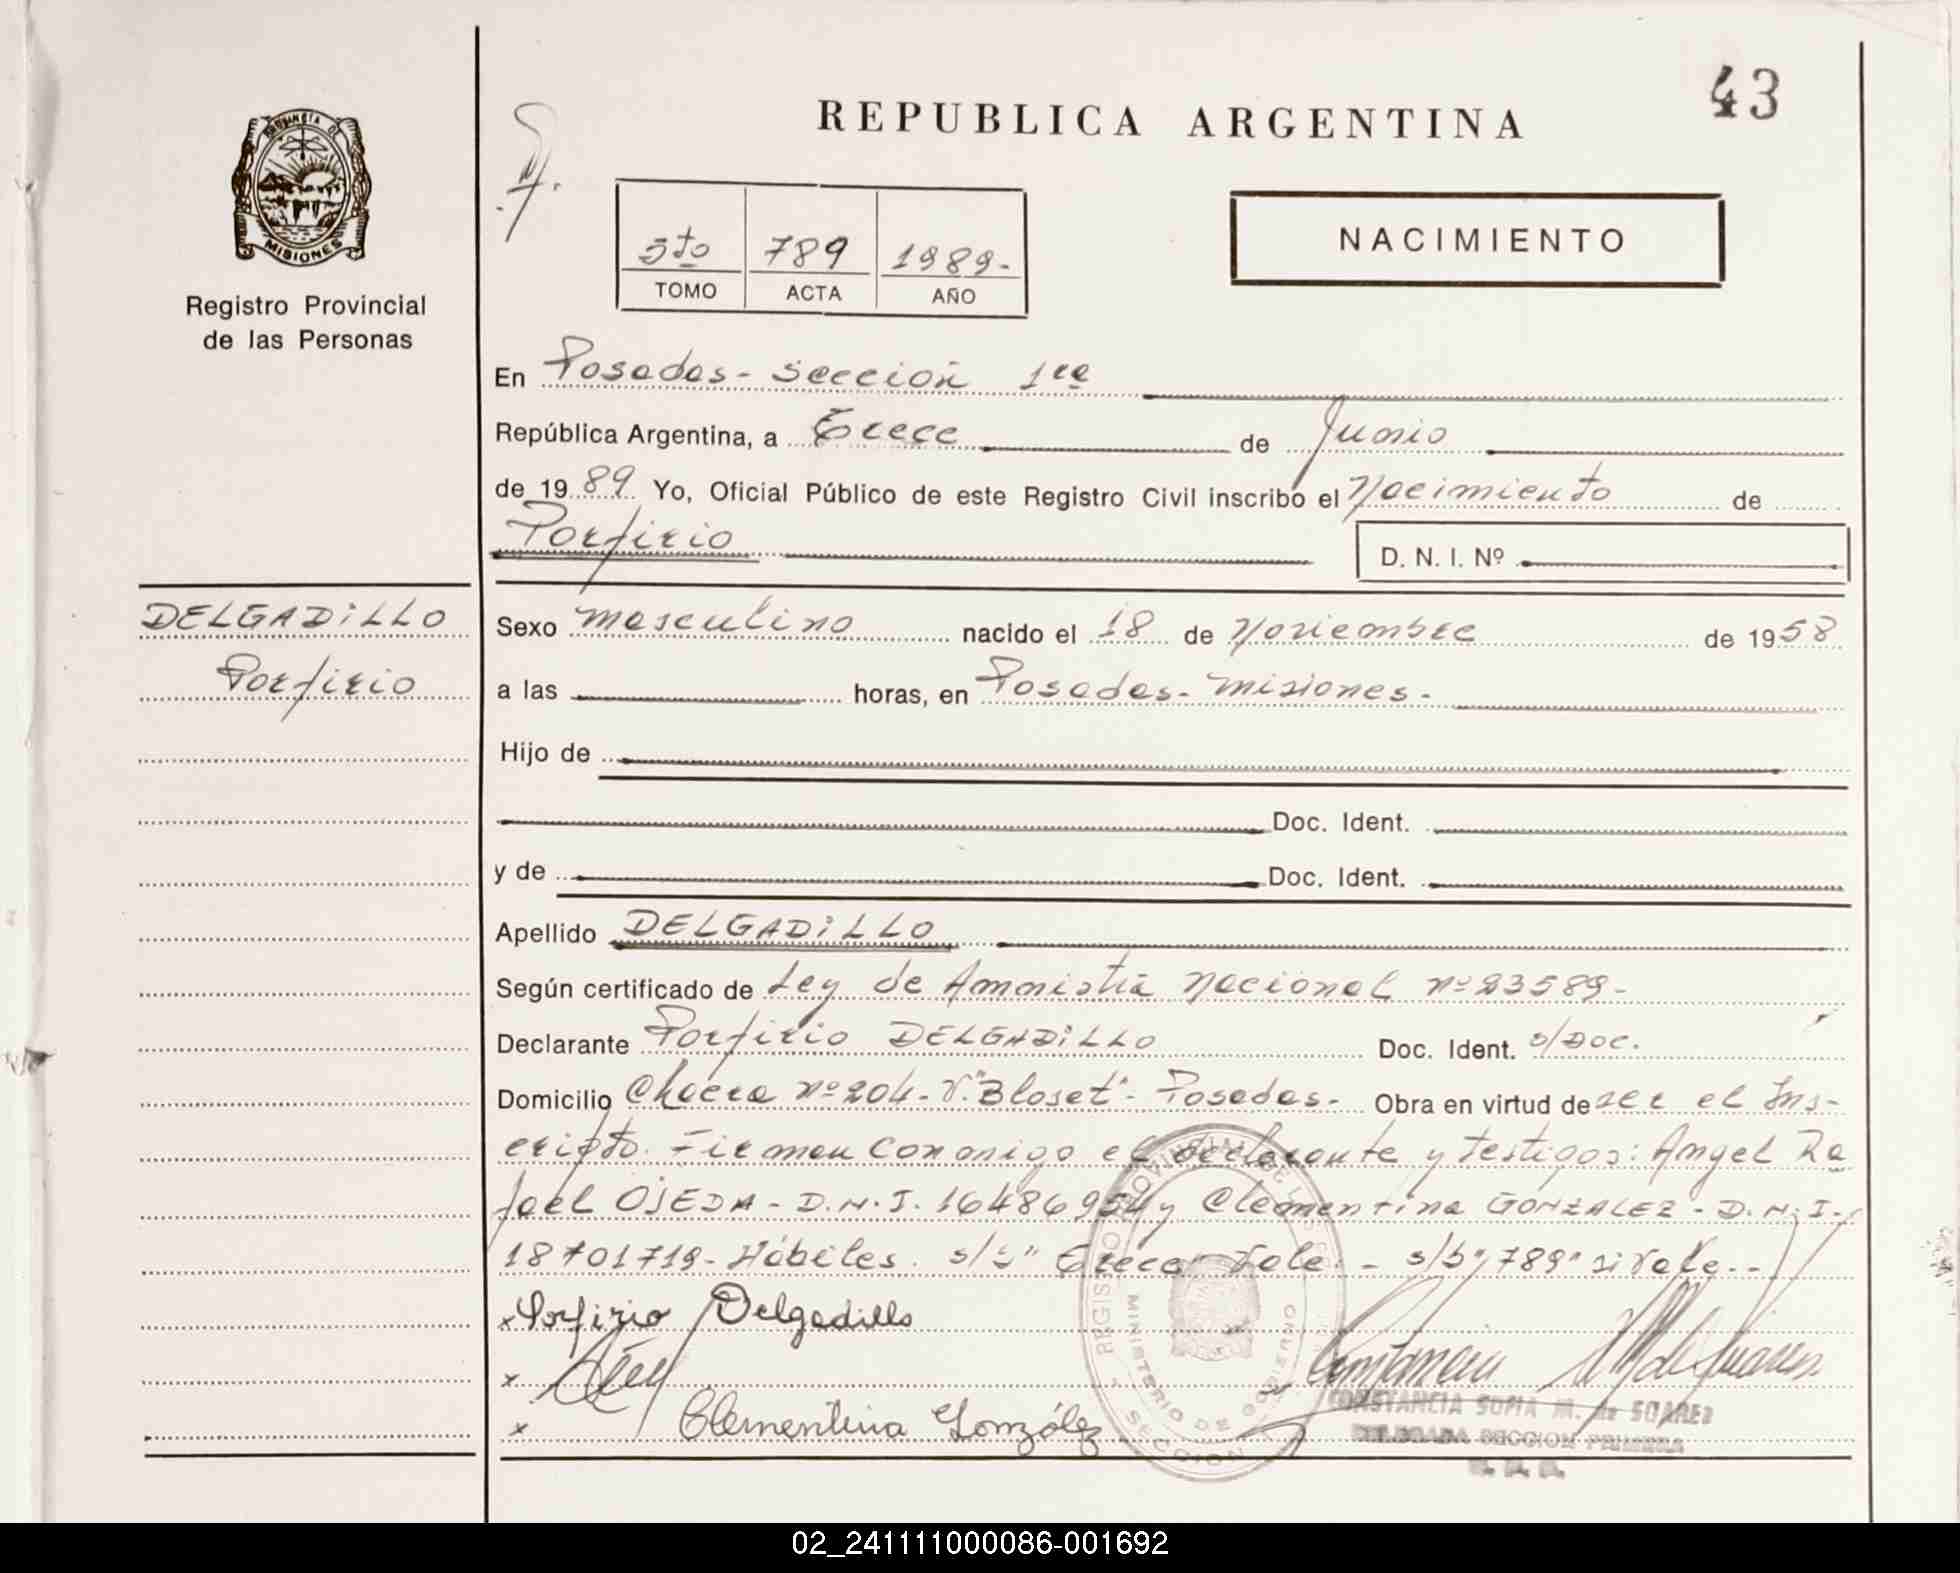 43
REPUBLICA ARGENTINA
PROVINCIA D
MISIONES
Registro Provincial
de las Personas
5to 789 1989-
TOMO ACTA AÑO
NACIMIENTO
En Posadas - Sección 1ra
República Argentina, a Trece de Junio
de 1989 Yo, Oficial Público de este Registro Civil inscribo el Nacimiento de
Porfirio D. N. I. Nº
DELGADILLO
Porfirio
Sexo masculino nacido el 18 de Noviembre de 1958
a las horas, en Posadas - Misiones -
Hijo de
Doc. Ident.
y de Doc. Ident.
Apellido DELGADILLO
Según certificado de Ley de Amnistía Nacional nº 23589-
Declarante Porfirio DELGADILLO Doc. Ident. s/Doc.
Domicilio Chacra nº 204 - V. "Bloset" - Posadas - Obra en virtud de ser el Ins-
cripto. Firman conmigo el declarante y testigos: Angel Ra
fael OJEDA - D.N.I. 16486954 y Clementina GONZALEZ - D.N.I.-
18701719 - Hábiles. s/b " Trece" Vale. - s/b "789" si Vale. -
x Porfirio Delgadillo
x
x Clementina González
REGISTRO PROVINCIAL DE LAS
MINISTERIO DE GOBIERNO
SECCION
CONSTANCIA SOFIA M. de SUAREZ
DELEGADA SECCION PRIMERA
02_241111000086-001692